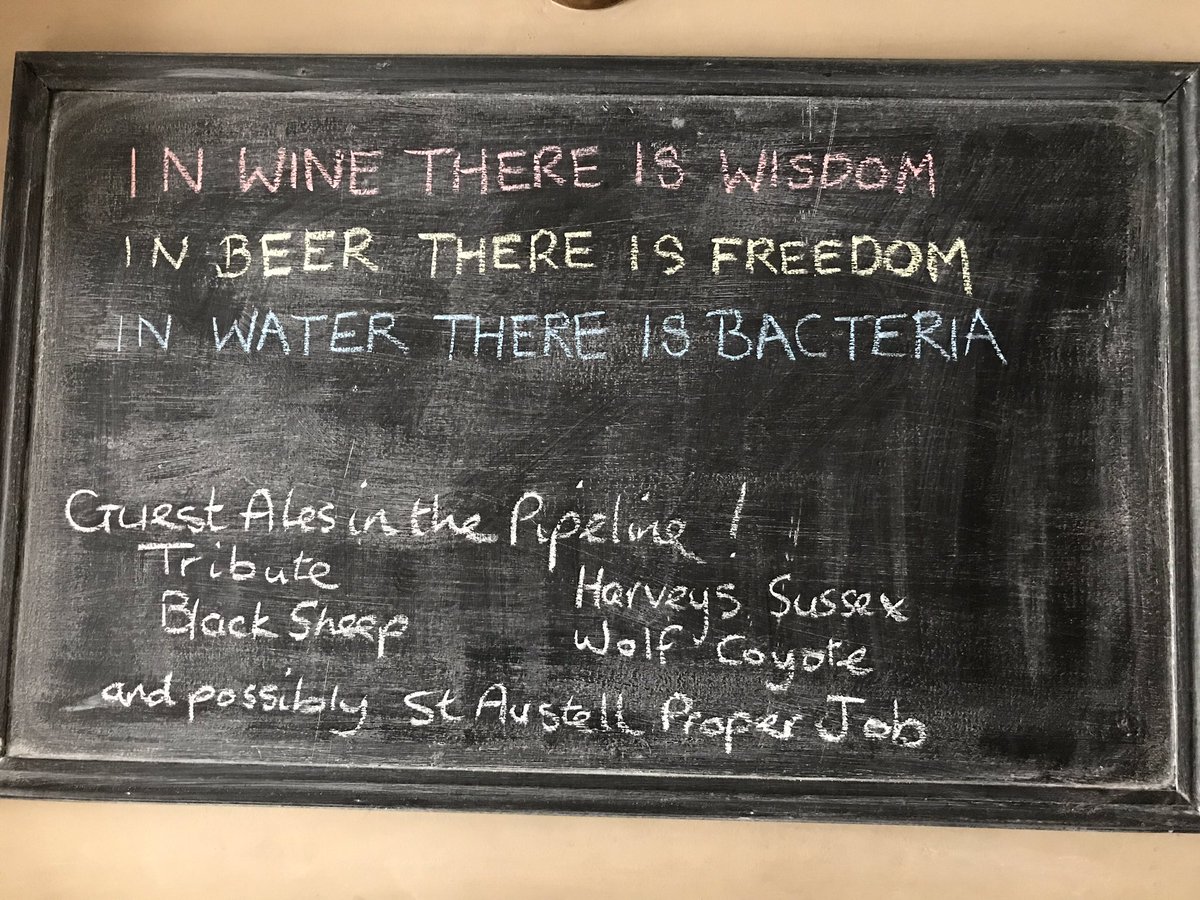 IN WINE THERE IS WISDOM
IN BEER THERE IS FREEDOM
IN WATER THERE IS BACTERIA
Guest Ales in the Pipeline!
Tribute Harveys Sussex
Black Sheep Wolf Coyote
and possibly St Austell Proper Job